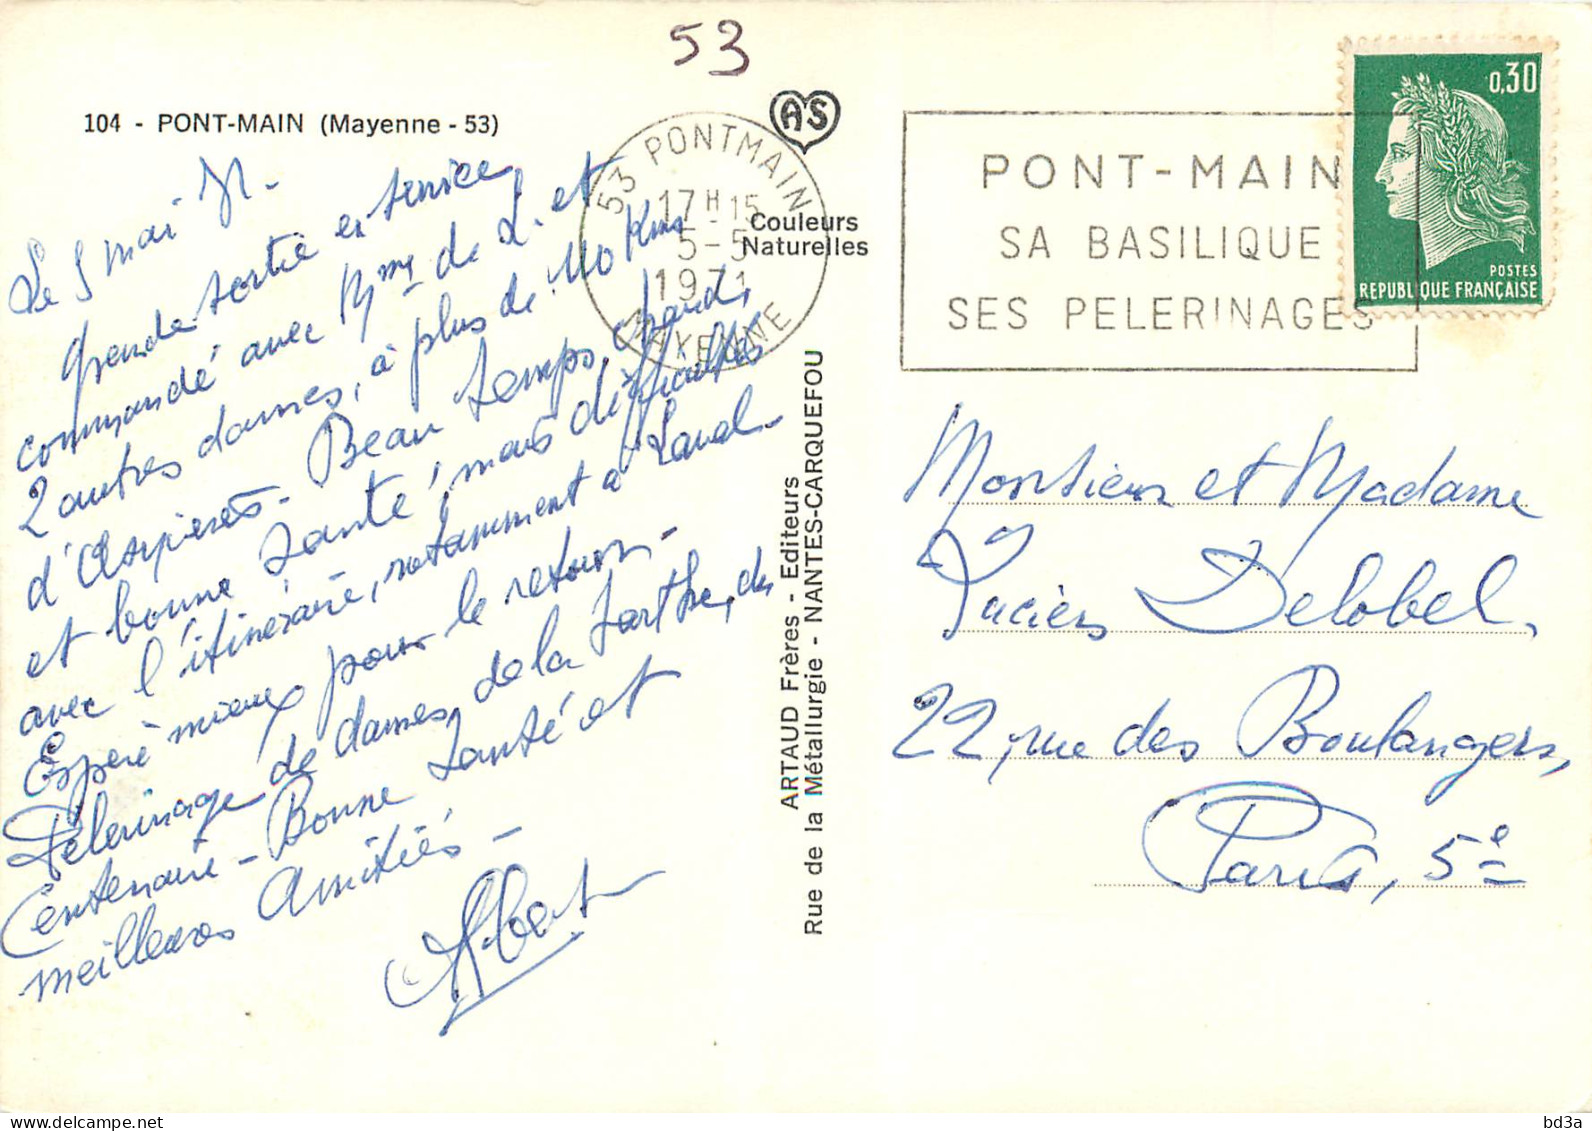 53
104 - PONT-MAIN (Mayenne - 53)
AS
53 PONTMAIN
17H15
5-5
1971
MAYENNE
Couleurs
Naturelles
PONT-MAIN
SA BASILIQUE
SES PELERINAGES
0,30
POSTES
REPUBLIQUE FRANÇAISE
Le 5 mai 71.
Grande sortie et service
commandé avec Mme de L. et
2 autres dames, à plus de 110 Kms
d'Asnières. Beau temps, chaud,
et bonne santé, mais difficultés
avec l'itinéraire, notamment à Laval.
Espère mieux pour le retour.
Pèlerinage de dames, de la Sarthe, du
Centenaire - Bonne santé et
meilleures Amitiés -
Albert
ARTAUD Frères - Editeurs
Rue de la Métallurgie - NANTES-CARQUEFOU
Monsieur et Madame
Lucien Delobel,
22, rue des Boulangers,
Paris, 5e
bd3a